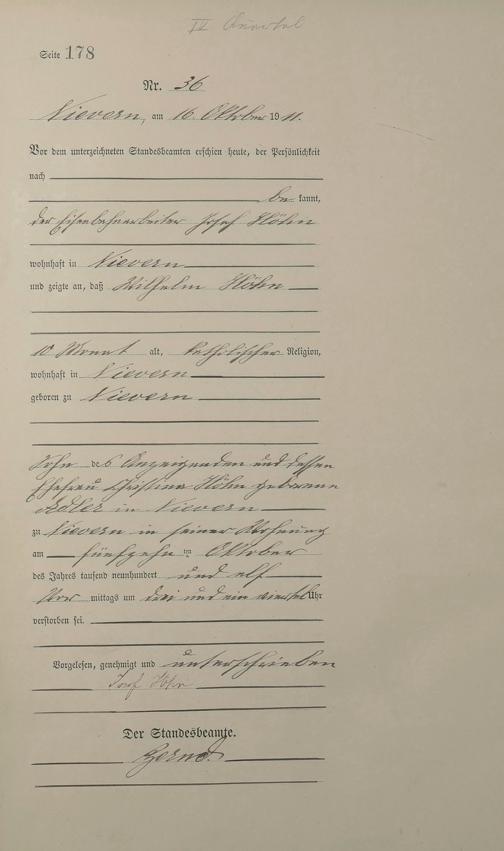 IV Quartal
Seite 178
Nr. 36
Nievern, am 16. Oktober 1911.
Vor dem unterzeichneten Standesbeamten erschien heute, der Persönlichkeit
nach
be kannt,
der Eisenbahnarbeiter Josef Höhn
wohnhaft in Nievern
und zeigte an, daß Wilhelm Höhn
10 Monat alt, katholischer Religion,
wohnhaft in Nievern
geboren zu Nievern
Sohn des Anzeigenden und dessen
Ehefrau Christina Höhn geborene
Adler in Nievern
zu Nievern in seiner Wohnung
am fünfzehn ten Oktober
des Jahres tausend neunhundert und elf
Vor mittags um drei und ein viertel Uhr
verstorben sei.
Vorgelesen, genehmigt und unterschrieben
Josef Höhn
Der Standesbeamte.